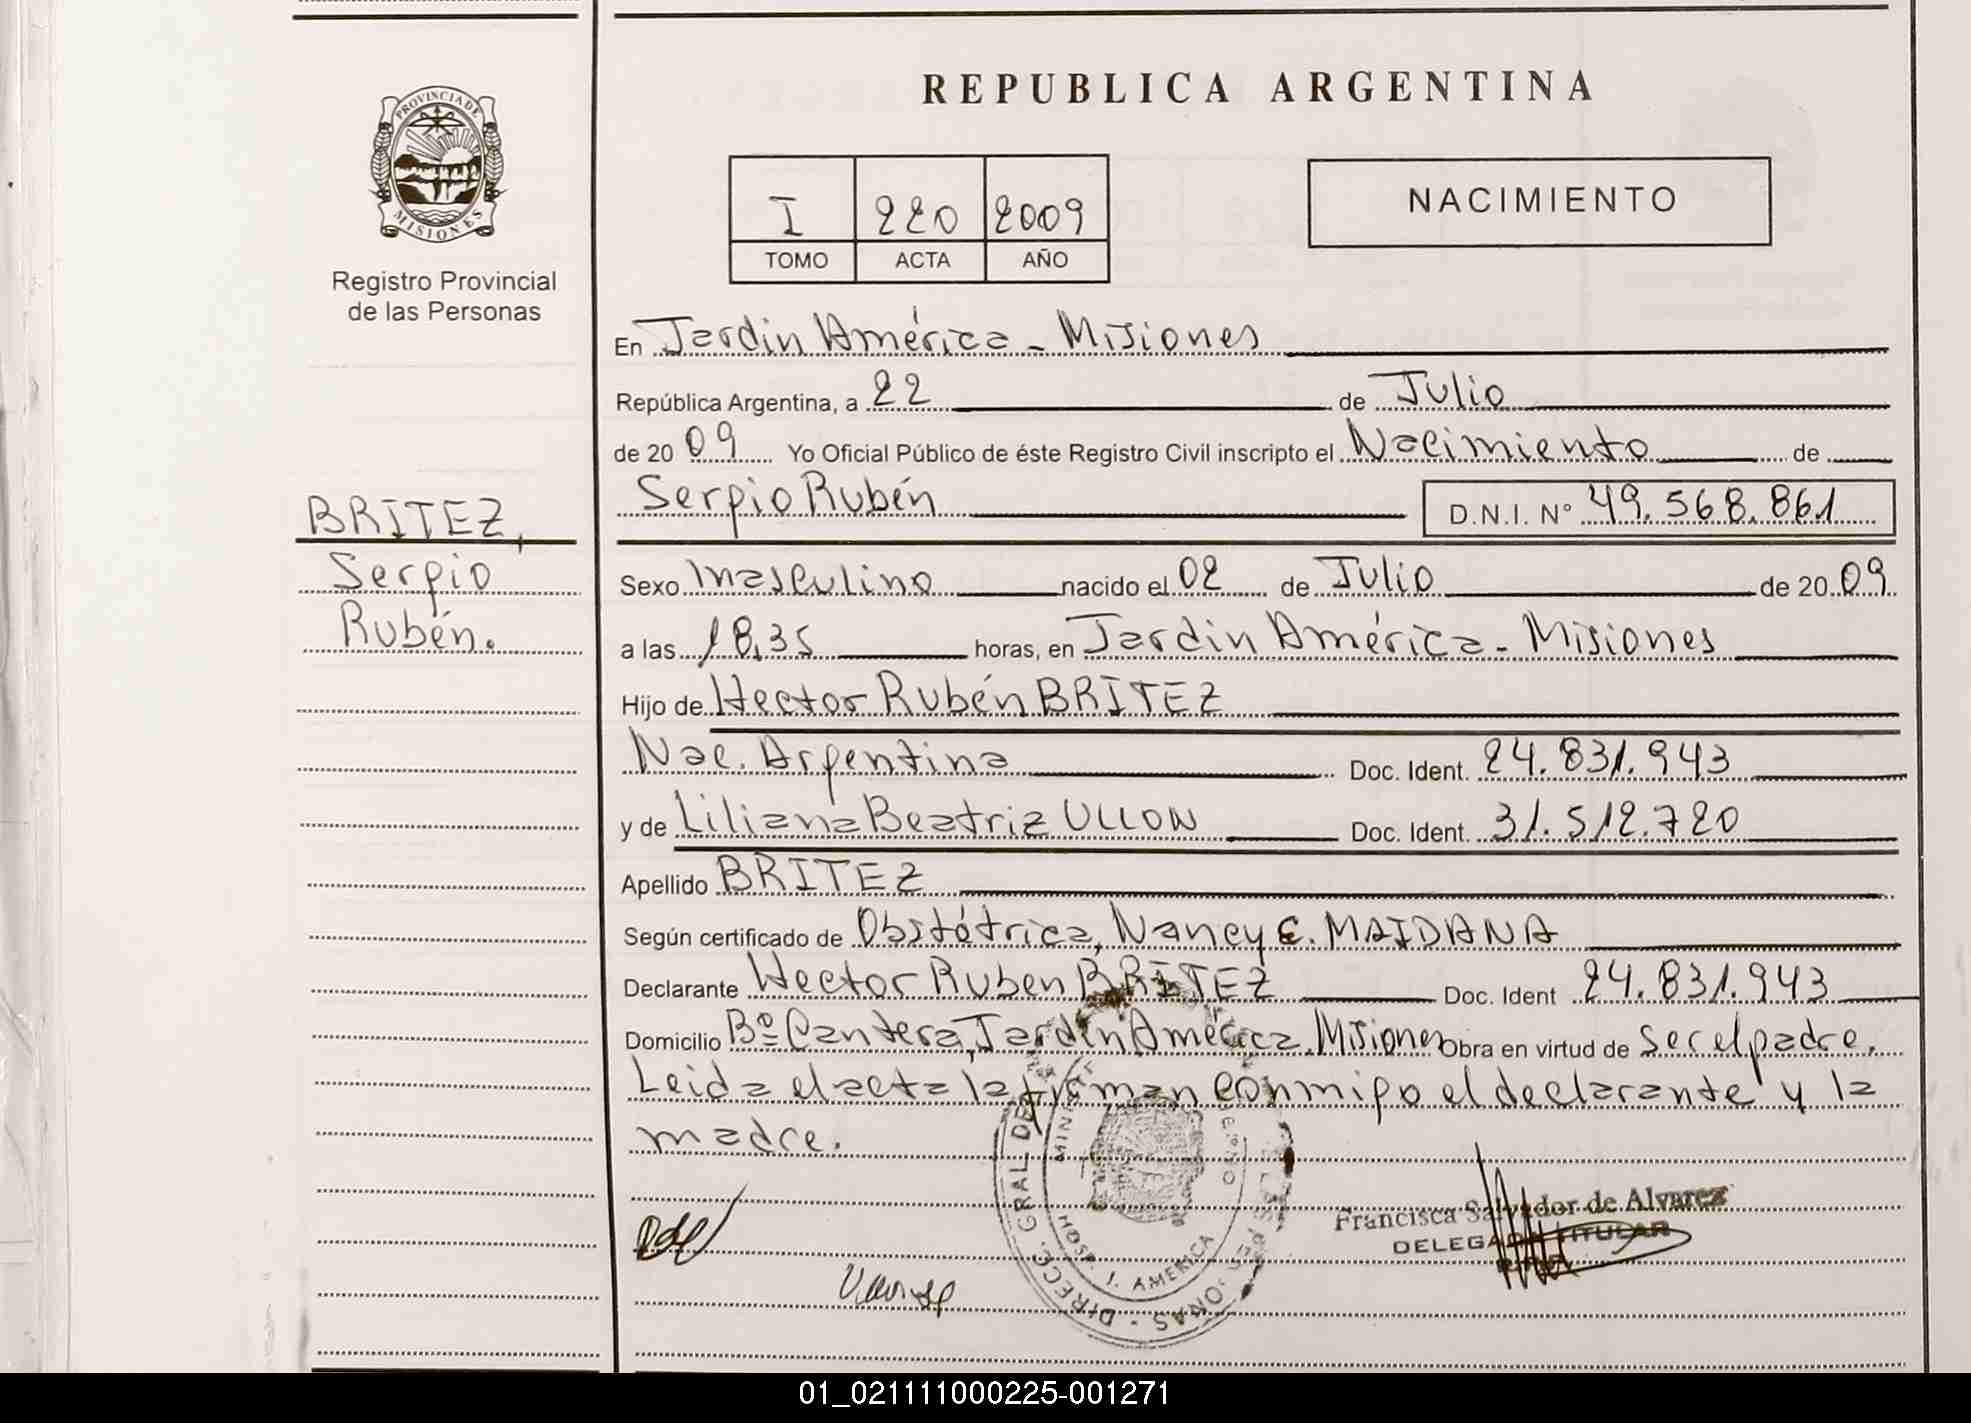 REPUBLICA ARGENTINA
PROVINCIA DE
MISIONES
Registro Provincial
de las Personas
I 220 2009
TOMO ACTA AÑO
NACIMIENTO
En Jardín América - Misiones
República Argentina, a 22 de Julio
de 20 09 Yo Oficial Público de éste Registro Civil inscripto el Nacimiento de
Sergio Rubén D.N.I. N° 49.568.861
BRITEZ,
Sergio
Rubén.
Sexo masculino nacido el 02 de Julio de 20 09
a las 18,35 horas, en Jardin América - Misiones
Hijo de Hector Rubén BRITEZ
Nac. Argentina Doc. Ident. 24.831.943
y de Liliana Beatriz ULLON Doc. Ident. 31.512.720
Apellido BRITEZ
Según certificado de Obstétrica, Nancy E. MAIDANA
Declarante Hector Ruben BRITEZ Doc. Ident 24.831.943
Domicilio Bº Cantera, Jardín América. Misiones Obra en virtud de ser el padre.
Leida el acta la firman conmigo el declarante y la
madre.
DIRECC. GRAL DE
HOSP. J. AMERICA
Francisca Salvador de Alvarez
DELEGADA TITULAR
01_021111000225-001271